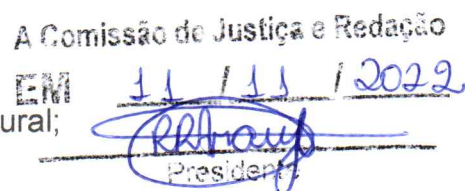 A Comissão de Justiça e Redação
EM 11 / 11 / 2022
ural;
Presidente